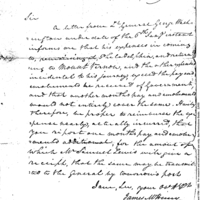 Sir
A letter from Lt General George Wash-
ington under date of the 6th Inst
informs me that his expences in coming
to, remaining at, Philadelphia, and returning
to Mount Vernon, and the other expences
incidental to his journey exceed the pay and
emoluments he received of Government
and that another month's pay and emoluments
would not entirely cover the same. It may
therefore be proper to reimburse the ex-
pences nearly, actually incurred, that
you report one month's pay and emolu-
ments additional, for the amount of
which Mr Samuel Lewis will give a
receipt, that the same may be transmit-
ted to the General by tomorrows post
I am, Sir, your Obedt
James McHenry